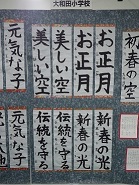 大和田小学校
初春の空
お正月
お正月
美しい空
美しい空
元気な子
新春の光
新春の光
伝統を守る
伝統を守る
元気な子